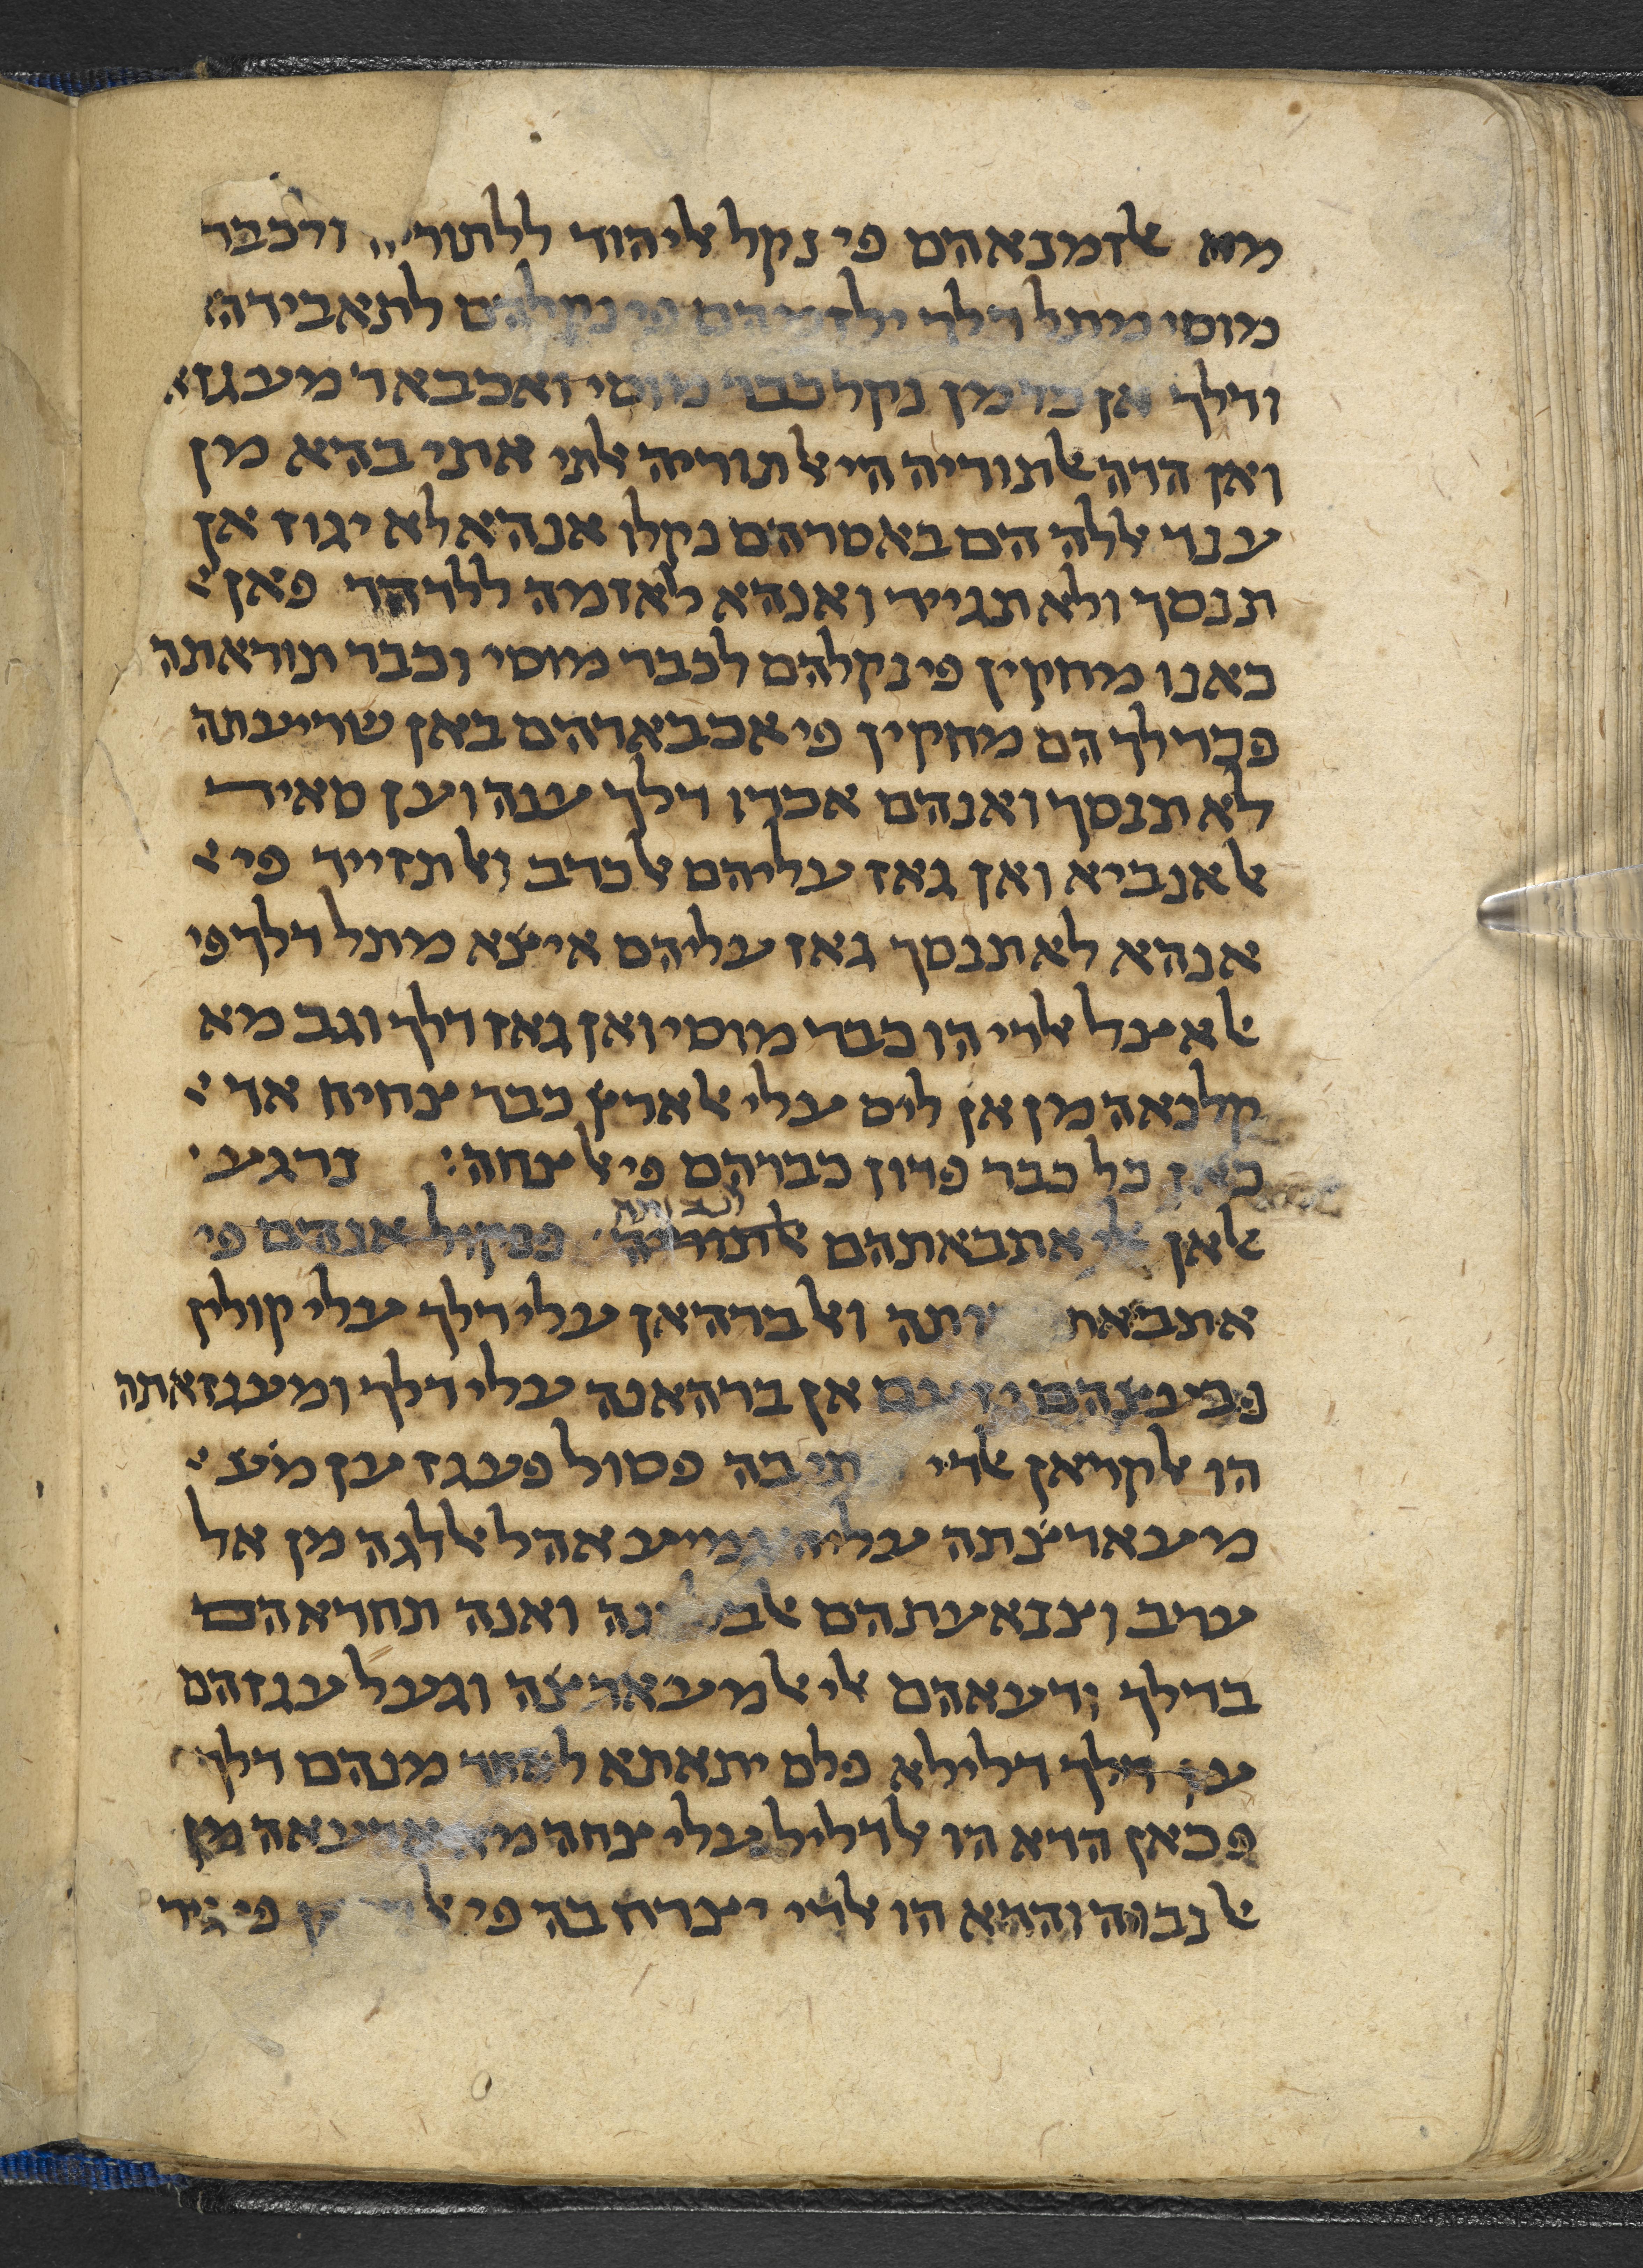 מא אלזמנאהם פי נקל אליהוד ללתוריה ולכבר
מוסי מתל דלך ילזמהם פי נקלהם לתאבידהא
ודלך אן כד מן נקל כבר מוסי ואכבאר מעגזא
ואן הדה אלתוריה הי אלתוריה אלתי אתי בהא מן
ענד אללה הם באסרהם נקלו אנהא לא יגוז אן
תנסך ולא תגייר ואנהא לאזמה ללדהר פאן
כאנו מחקין פי נקלהם לכבר מוסי וכבר תוראתה
פכדלך הם מחקין פי אכבארהם באן שריעתה
לא תנסך ואנהם אכדו דלך ענה וען סאיר
אלאנביא ואן גאז עליהם אלכדב ואלתזייד פי
אנהא לא תנסך גאז עליהם איצא מתל דלך פי
אלאצל אלדי הו כבר מוסי ואן גאז דלך וגב מא
קלנאה מן אן ליס עלי אלארץ כבר צחיח אד
כאן כל כבר פדון כברהם פי אלצחה׃ נרגע
אלאן אלי אתבאתהם אלתוריה פנקול אנהם פי
אתבאת ותה ואלברהאן עלי דלך עלי קולין
פמנהם יזעם אן ברהאנה עלי דלך ומעגזאתה
הו אלקראן אלדי בה פסול פעגז ען מצ
מעארצתה עליה גמיע אהל אללגה מן אל
ערב וצנאעתהם אלבלאגה ואנה תחדאהם
בדלך ודעאהם אלי אלמעארצה וגעל עגזהם
ען דלך דלילא פלם יתאתא לאחד מנהם דלך
פכאן הדא הו אלדליל עלי צחה מא אדעאה מן
אלנבוה והדא הו אלדי יצרח בה פי פי גיר